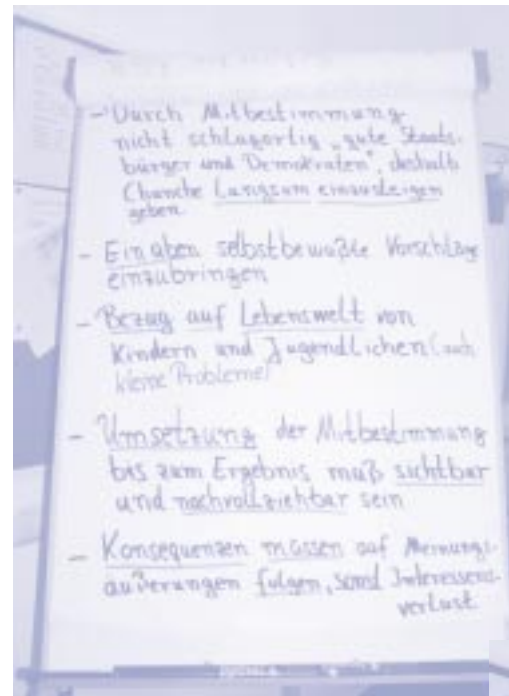 - Durch Mitbestimmung
nicht schlagartig „gute Staats-
bürger und Demokraten", deshalb
Chanche langsam einzusteigen
geben
- Ein üben selbstbewußte Vorschläge
einzubringen
- Bezug auf Lebenswelt von
Kindern und Jugendlichen (auch
kleine Probleme)
- Umsetzung der Mitbestimmung
bis zum Ergebnis muß sichtbar
und nachvollziehbar sein
- Konsequenzen müssen auf Meinungs-
äußerungen folgen, sonst Interessens-
verlust